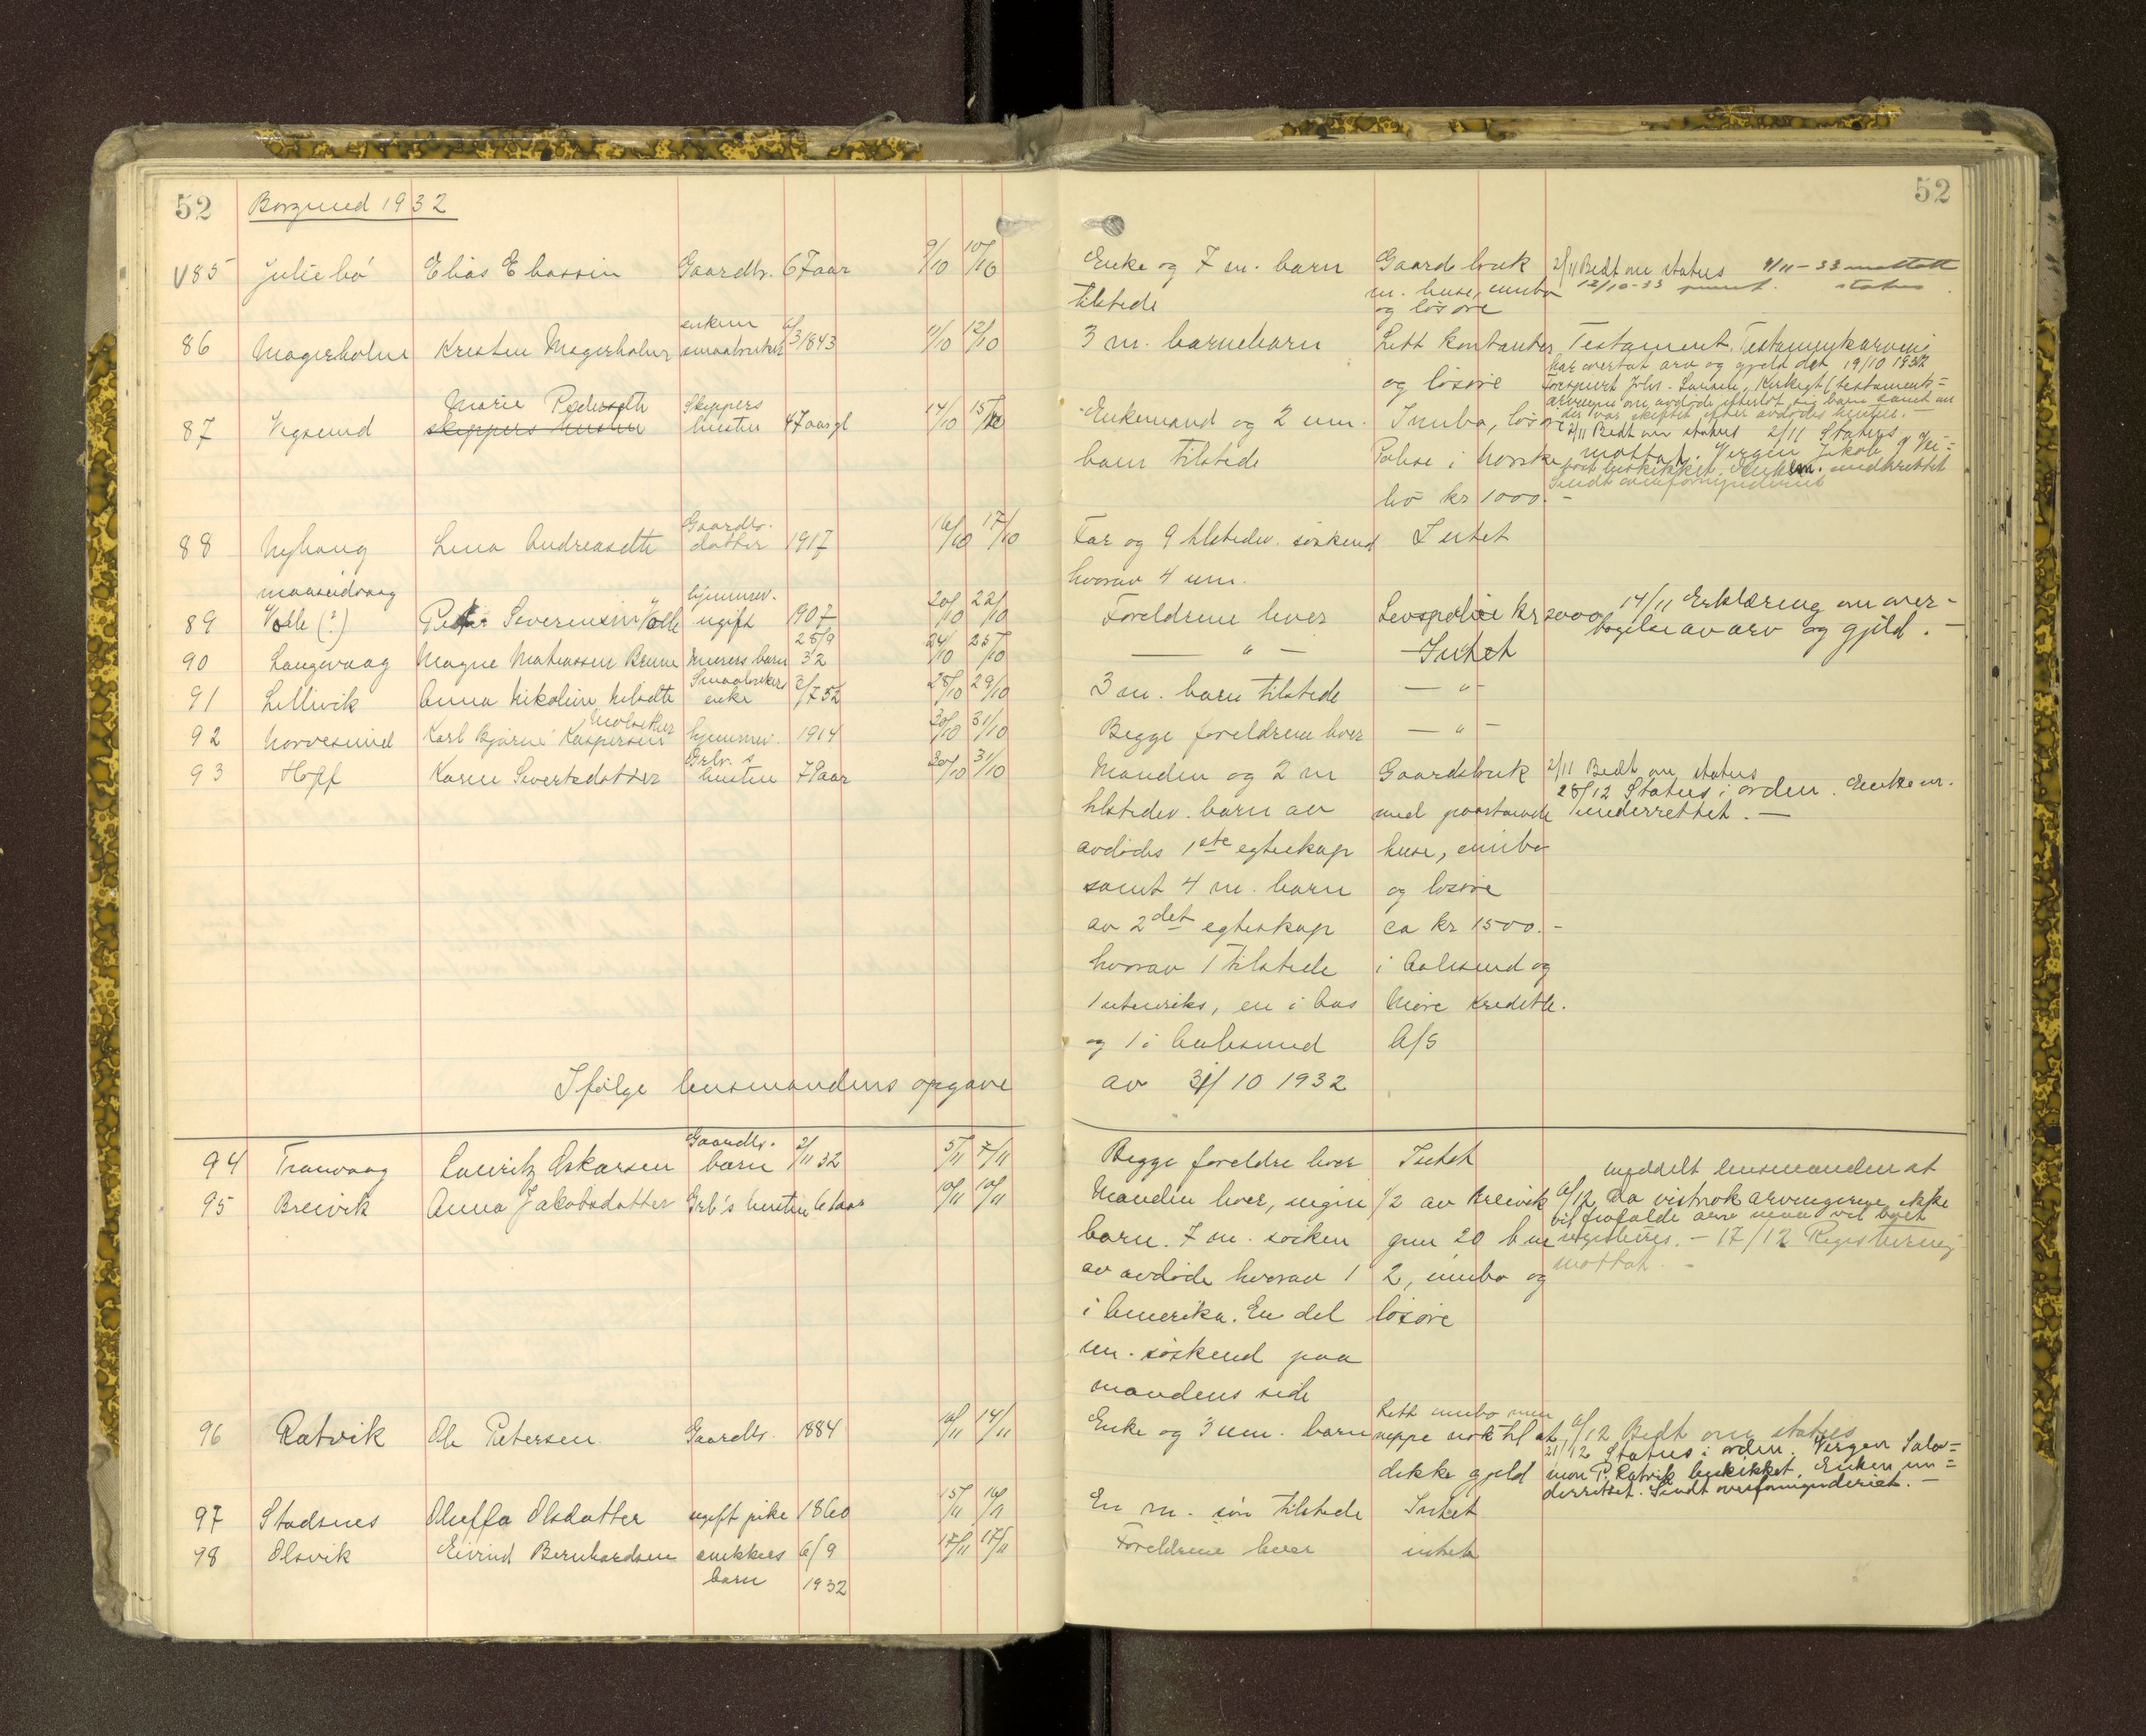 52 Borgund 1932
V85 Juliebö Elias Eliassen Gaardbr. 67 aar 9/10 10/10
86 Magerholm Kristen Magerholm enkem smaabruker 6/3 1843 11/10 12/10
87 Vegsund Marie Pedersdtr Skippers hustru 47 aar gl 14/10 15/10
skippers hustru
88 Nyhaug Lina Andreasdtr Gaardbr. datter 1917 16/10 17/10
maaseidvaag
89 Valle (?) Petter Severinsen Valle hjemmev. ugift 1907 20/10 22/10
90 Langevaag Magne Mathiassen murers barn 25/9 32 24/10 25/10
91 Lillevik Anna Nikoline Nilsdtr Smaabrukers enke 28/10 29/10
92 Norvesund Karl Bjarne Kaspersen Molsæther hjemmev. 1914 30/10 31/10
93 Hoff Karen Sivertsdatter Grbr.s hustru 79 aar 30/10 31/10
Ifølge lensmandens opgave
94 Tranvaag Lauritz Oskarsen Gaardbr. barn 2/11 32 5/11 7/11
95 Breivik Anna Jakobsdatter Grb's hustru 61 aar 10/11 10/11
96 Ratvik Ole Petersen Gaardbr. 1884 10/11 14/11
97 Stadsnes Oluffa Olsdatter ugift pike 1860 15/11 16/11
98 Olsvik Eivind Bernhardsen snekkers 6/9 17/11 17/11
barn 1932
52
Enke og 7 m. barn Gaardsbruk 2/11 Bedt om status 4/11-33 mottatt
tilstede m. huse, innbo 12/10-33 status
og lösöre
3 m. barnebarn Litt kontanter Testament. Testamentarving
og lösöre har overtat arv og gjeld det 19/10 1932
Forespurt Johs. Larsen, Kirkegt (testaments=
arvingen om avdøde efterlot sig barn samt om
der var skiftet efter avdødes hustru. -
Enkemand og 2 um. Innbo, lösöre 2/11 Bedt om status 2/11 Status
barn tilstede Polise i norske mottat. Vergen Jakob Vei=
beskikket. Enkem. underrettet
liv kr 1000.- Sendt overformynderiet
Far og 9 tilstedev. söskend Intet
hvorav 4 um.
Foreldrene lever Livspolise kr 2000 14/11 Erklæring om over-
tagelse av arv og gjeld. -
— " — Intet
3 m. barn tilstede — " —
Begge foreldrene lever — " —
Manden og 2 m Gaardsbruk 2/11 Bedt om status
28/12 Status i orden. Enkem.
tilstedev. barn av med paastaaende underrettet. —
avdödes 1ste egteskap huse, innbo
samt 4 m. barn og lösöre
av 2det egteskap ca kr 1500.-
hvorav 1 tilstede i Aalesund og
1 utenriks, en i Aas Möre Kreditb.
og 1 i Aalesund A/S
av 31/10 1932
Begge foreldre lever Intet meddelt lensmanden at
Manden lever, ingen 1/2 av Breivik 6/12 da vistnok arvingerne ikke
vil frafalde arv maa vel boet
barn. 7 m. söskn gnr 20 b nr registreres. - 17/12 Registrering
av avdöde hvorav 1 2, innbo og mottat. -
i Amerika. En del lösöre
um. söskend paa
mandens side
Enke og 3 um. barn Litt innbo men 6/12 Bedt om status
neppe nok til at 21/12 Status i orden. Vergen Salo=
dekke gjeld mon P. Ratvik beskikket. Enken un=
derrettet. Sendt overformynderiet. —
En m. sön tilstede Intet
Foreldrene lever intet